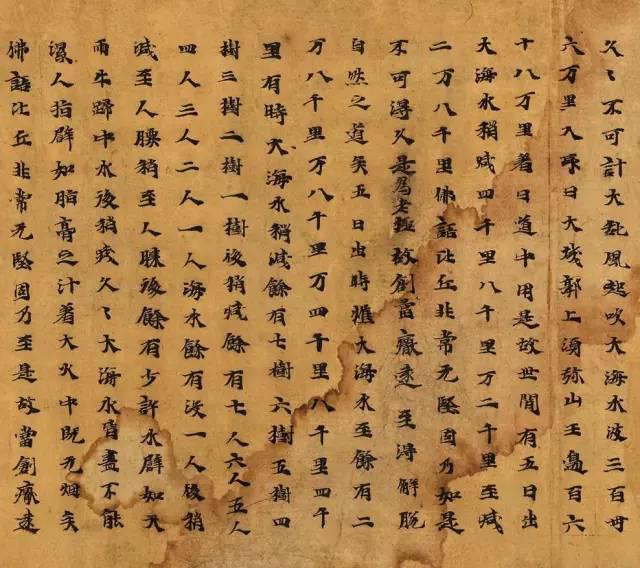 久〻不可計大亂風起吹大海水波三百卅
六万里入呼日大城郭上湏弥山王邊百六
十八万里著日道中用是故世間有五日出
大海水稍減四千里八千里万二千里至減
二万八千里佛語比丘非常无堅固乃如是
不可得久是爲老極故創當癡遠至得解脫
自然之道矣五日出時雖大海水至餘有二
万八千里万八千里万四千里八千里四千
里有時大海水稍減餘有七樹六樹五樹四
樹三樹二樹一樹後稍減餘有七人六人五人
四人三人二人一人海水餘有没一人後稍
減至人腰稍至人膝後餘有少許水辟如天
雨牛蹄中水後稍減久〻大海水皆盡不能
没人指辟如脂膏之汁着大火中既无烟矣
佛語比丘非常无堅固乃至是故當創癡遠